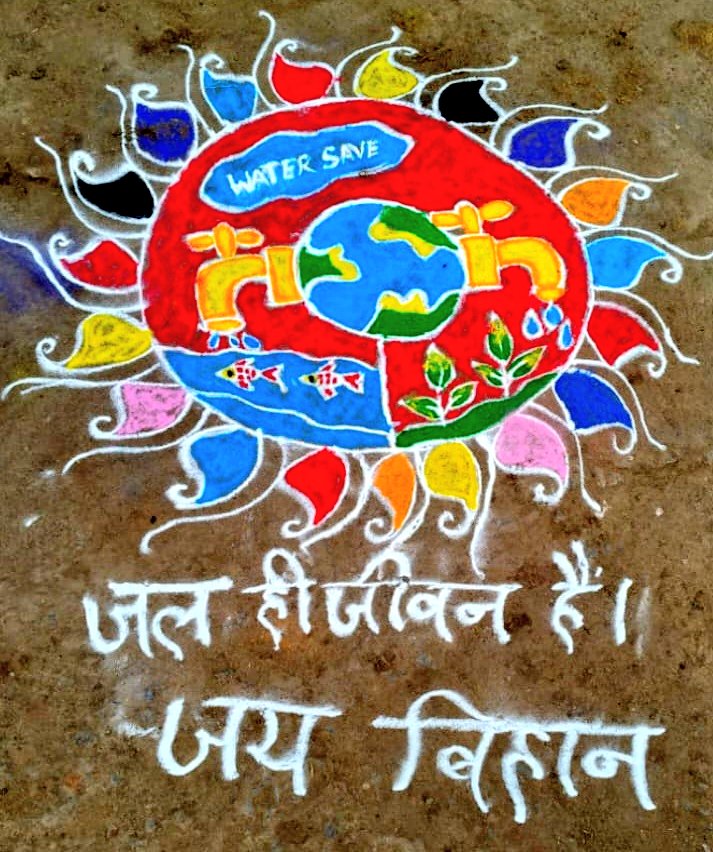 WATER SAVE
जल ही जीवन हैं।
जय बिहान